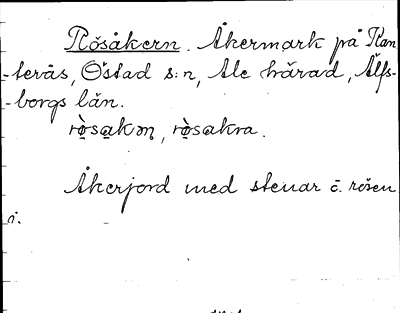 Rösåkern. Åkermark på Kan-
terås, Östad s:n, Ale härad, Älfs-
borgs län.
rò̤sakən, rò̤sakra.
Åkerjord med stenar o. rösen
i.